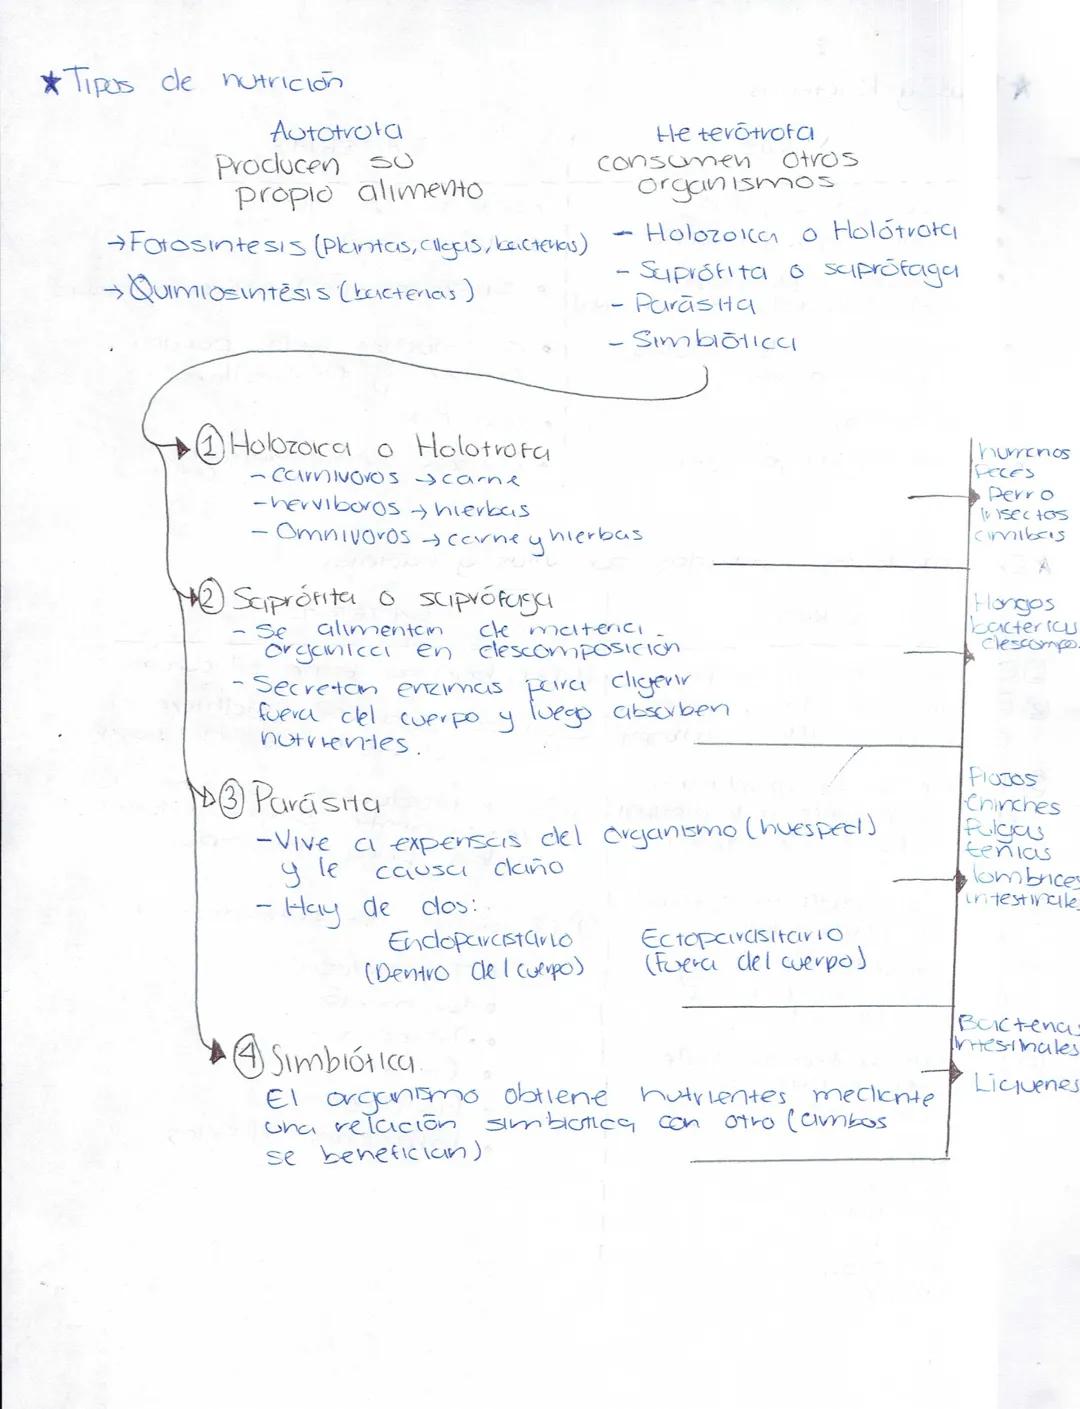 ★Tipos de nutrición
Autotrofa
Producen su
propio alimento
→Fotosintesis (Plantas, algas, bacterias)
→Quimiosintésis (bacterias)
Heterótrofa
consumen otros
organismos
- Holozoica o Holótrofa
- Saprófita o saprófaga
- Parásita
- Simbiótica
① Holozoica o Holotrofa
- carnivoros → carne
- herviboros → hierbas
- Omnivoros → carne y hierbas
humanos
Peces
Perro
insectos
amibas
② Saprófita o saprófaga
- Se alimentan de materia
organica en descomposición
- Secretan enzimas para digerir
fuera del cuerpo y luego absorben
nutrientes.
Hongos
bacterias
descompo.
③ Parásita
- Vive a expensas del organismo (huesped)
y le causa daño
- Hay de dos:
Endoparasitario
(Dentro del cuerpo)
Ectoparasitario
(Fuera del cuerpo)
Piojos
Chinches
Pulgas
teñias
lombrices
intestinales
④ Simbiótica.
El organismo obtiene nutrientes mediante
una relación simbiotica con otro (ambos
se benefician)
Bacterias
intestinales
Liquenes